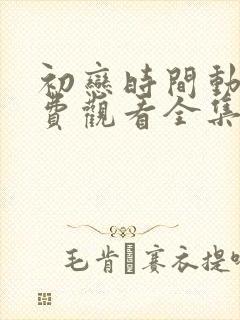 初戀時間動
費觀看全集
毛肯 賽衣提